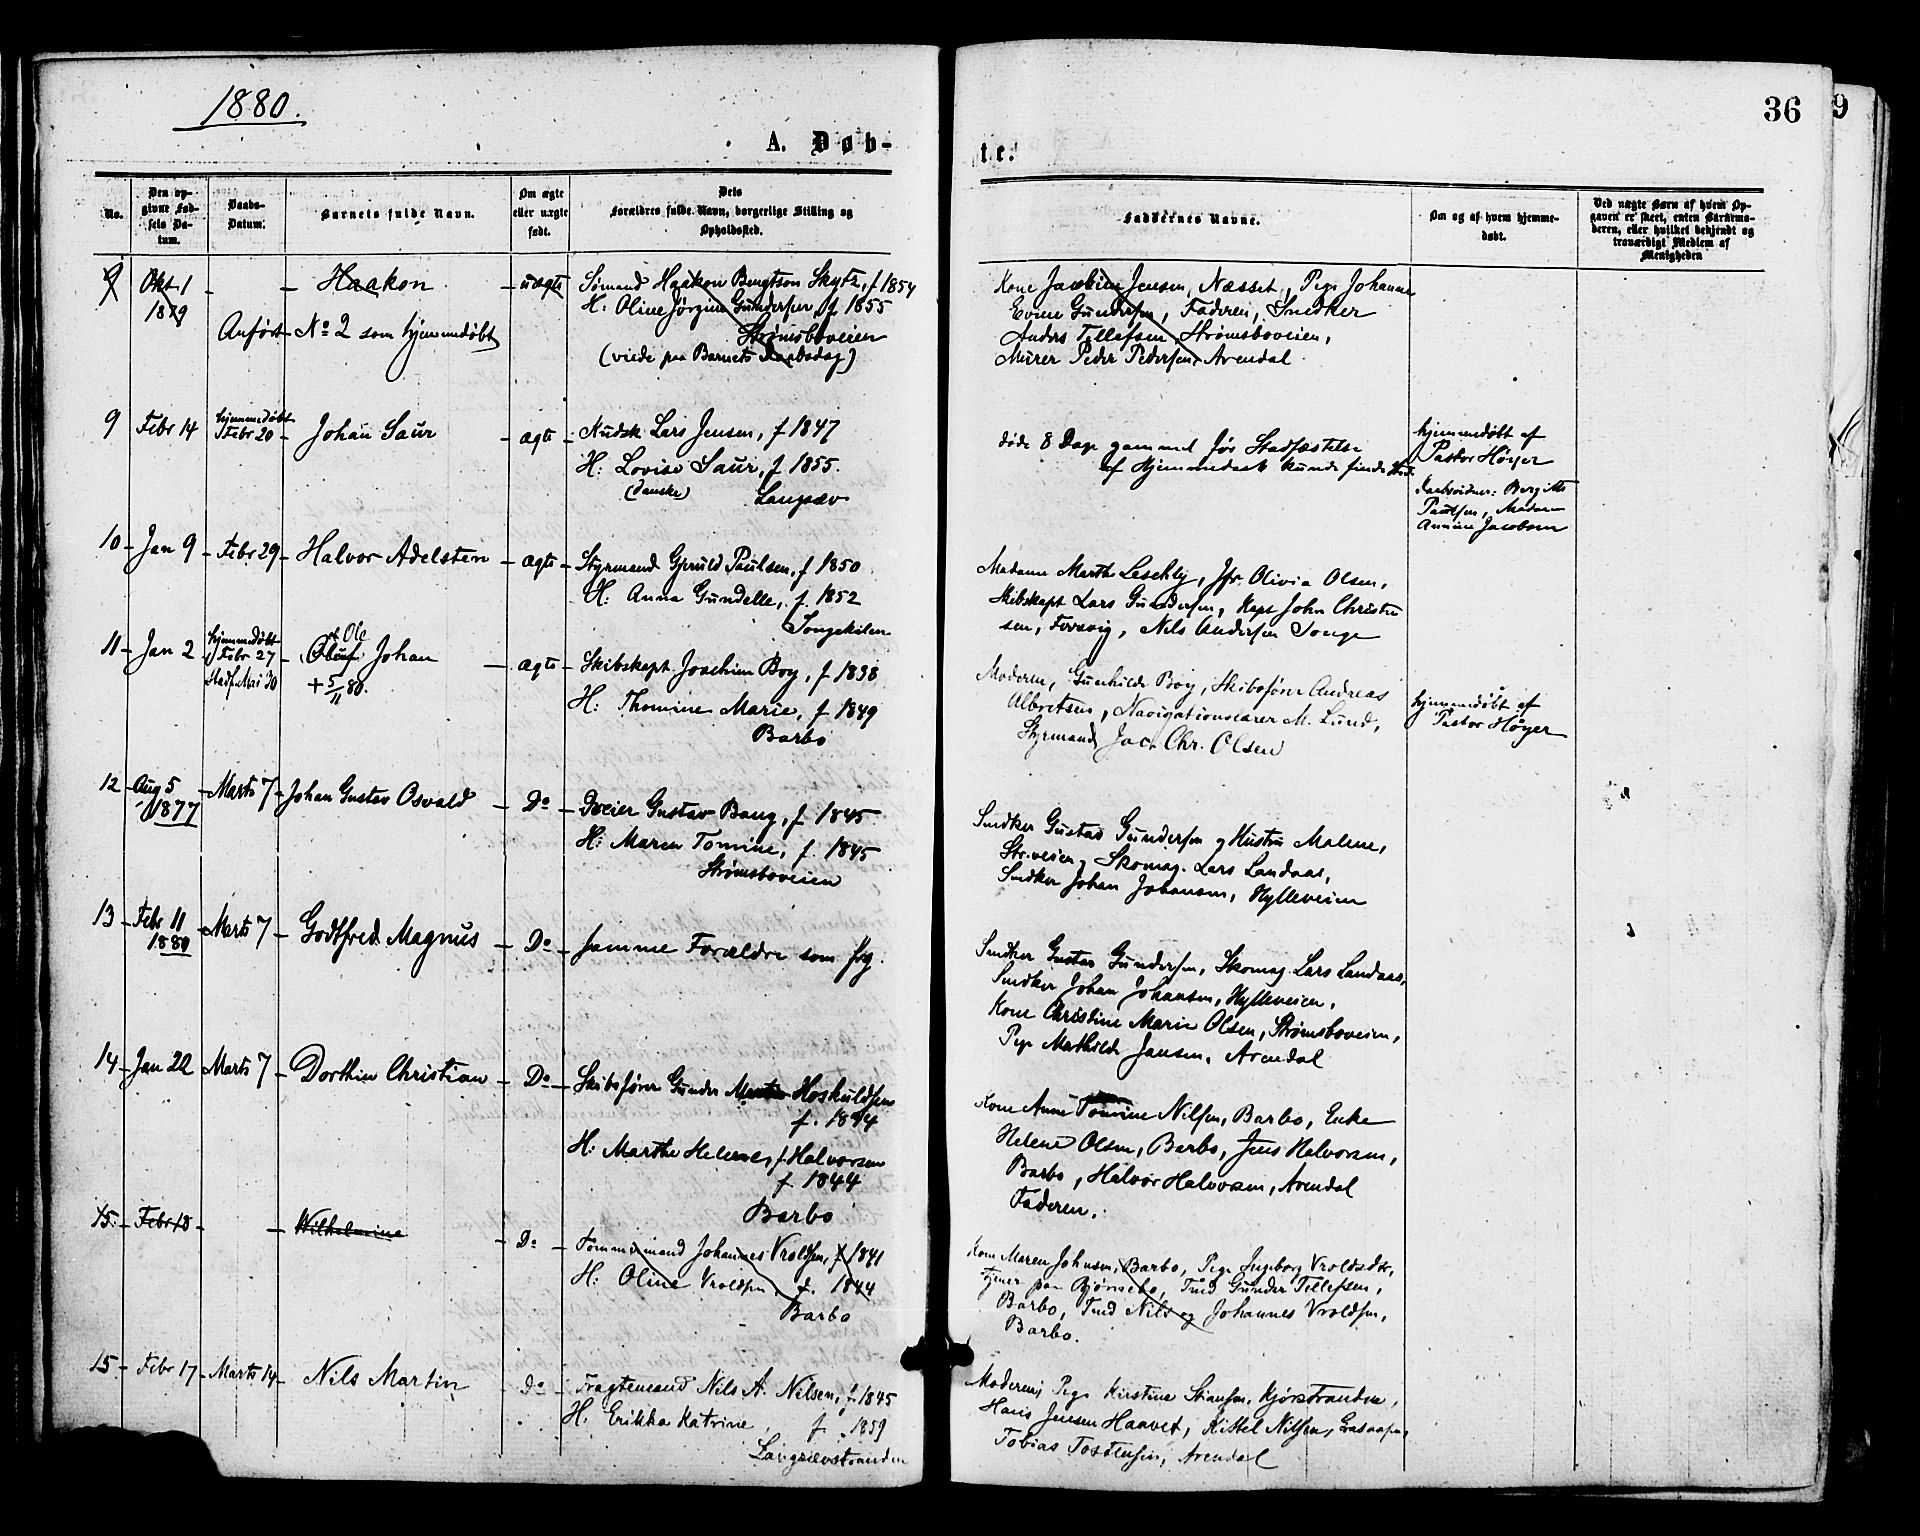 1880.
36
9
A. Døb-
te.
No.
Den op-
givne Fød-
sels Da-
tum.
Daabs-
Datum.
Barnets fulde Navn.
Om ægte
eller uægte
født.
Dets
Forældres fulde Navn, borgerlige Stilling og
Opholdssted.
Faddernes Navne.
Om og af hvem hjemme-
døbt.
Ved uægte Børn af hvem Op-
gaven er skeet, enten Barnemo-
deren, eller hvilket bekjendt og
troværdigt Medlem af
Menigheden
9 Okt 1 - - Haakon - uægte Sømand Haakon Bengtson Skytz, f 1854
1879 H: Oline Jørgine Gundersen, f 1855
Anført No 2 som hjemmedøbt Strømsboveien
(viede paa Barnets Daabsdag)
Kone Jacobine Jensen, Næsset, Pige Johanne
Evine Gundersen, Faderen, Snedker
Anders Tellefsen Strømsboveien,
Murer Peder Pedersen, Arendal.
9 Febr 14 hjemmedøbt
Febr 20 - Johan Saur - ægte - Kudsk Lars Jensen, f 1847
H: Lovise Saur, f 1855.
(danske) Langsæv
døde 8 Dage gammel før Stadfæstelse
af Hjemmedaab kunde finde Sted.
hjemmedøbt af
Pastor Høyer
Daabsvidner: Bergitte
Paulsen, Madam
Annine Jacobsen
10 - Jan 9 - Febr 29 - Halvor Adelsten - ægte - Styrmand Gjeruld Paulsen, f 1850
H: Anna Gundelle, f. 1852
Songekilen
Madame Marthe Leschly, Jfr Olivia Olsen,
Skibskapt Lars Gundersen, Kapt John Christen
sen, Færvig, Nils Andersen Songe
11 - Jan 2 hjemmedøbt
Febr 27 - Oluf Ole Johan - ægte Skibskapt Joachim Boy, f 1838
Stadf. Mai 30 + 5/11 80.
H: Thomine Marie, f 1849
Barbo
Moderen, Gunhilde Boy, Skibsfører Andreas
Albretsen, Navigationslærer M. Lund,
Styrmand Jac. Chr. Olsen
hjemmedøbt af
Pastor Høyer
12 - Aug 5 - Marts 7 - Johan Gustav Osvald - Do - Dreier Gustav Bang, f 1845
1877 H: Maren Tomine, f. 1845
Strømsboveien
Snedker Gustav Gundersen og Hustru Malene,
Str.veien, Skomag. Lars Landaas,
Snedker Johan Johansen, Hylleveien
13 - Febr 11 - Marts 7 - Godtfred Magnus - Do - samme Forældre som frg.
1880
Snedker Gustav Gundersen, Skomag. Lars Landaas,
Snedker Johan Johansen, Hylleveien,
Kone Christine Marie Olsen, Strømsboveien,
Pige Mathilde Jansen, Arendal
14 - Jan 22 Marts 7 - Dorthin Christian - Do - Skibsfører Gunder Hoskuldsen
f. 1844
H: Marthe Helene, f. Halvorsen
f. 1844
Barbo
Kone Anne Tomine Nilsen, Barbo, Enke
Helene Olsen, Barbo, Jens Halvorsen,
Barbo, Halvor Halvorsen, Arendal
Faderen.
15. - Febr 18 - - Wilhelmine - Do - Tømmermand Johannes Vroldsen, f 1841
H: Oline Vroldsen, f. 1844
Barbo
Kone Maren Johnsen, Barbo, Pige Ingeborg Vroldsdtr,
tjener paa Bjønnebo, Tmd Gunder Tellefsen,
Barbo, Tmd Nils og Johannes Vroldsen,
Barbo.
15 - Febr 17 - Marts 14 - Nils Martin - Do - Fragtemand Nils A. Nilsen, f. 1845
H: Erikka Katrine, f. 1859
Langsævstranden
Moderen, Pige Kirstine Stiansen, Kjørstranden,
Hans Jensen Haavet, Kittel Nilsen,
Tobias Tostensen, Arendal